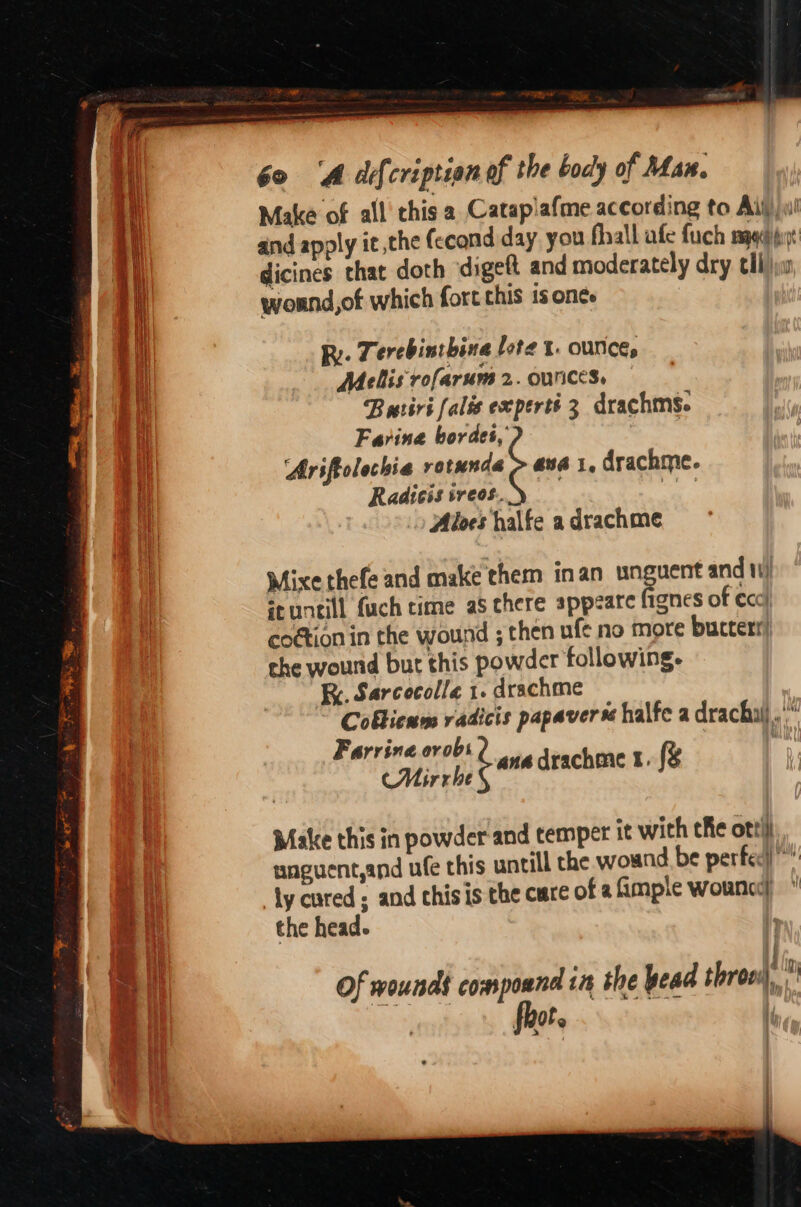 60 A deſcription of the body of Man.
Make of all this a Cataplaſme according to
and apply it, the ſecond day you ſhall uſe ſuch
dicines that doth digeſt and moderately dry
wound, of which ſort this is one.
℞. Terebinthina lote 1. ounce,
Mellis roſarum 2. ounces.
Butiri ſalis experts 3 drachms.
Farina hordei,
Ariſtolochia rotunda } ana 1. drachme.
Radicis ireos.
Aloes halfe a drachme
Mixe theſe and make them in an unguent and
it untill ſuch time as there appeare ſignes of
coction in the wound ; then uſe no more
the wound but this powder following.
℞. Sarcocolle 1. drachme
Corticum radicis papaveris halfe a
Farrina orobi } ana drachme 1. ſ&
Mirrhe
Make this in powder and temper it with the
unguent, and uſe this untill the wound be
ly cured ; and this is the cure of a ſimple
the head.
Of wounds compound in the head
ſhot.